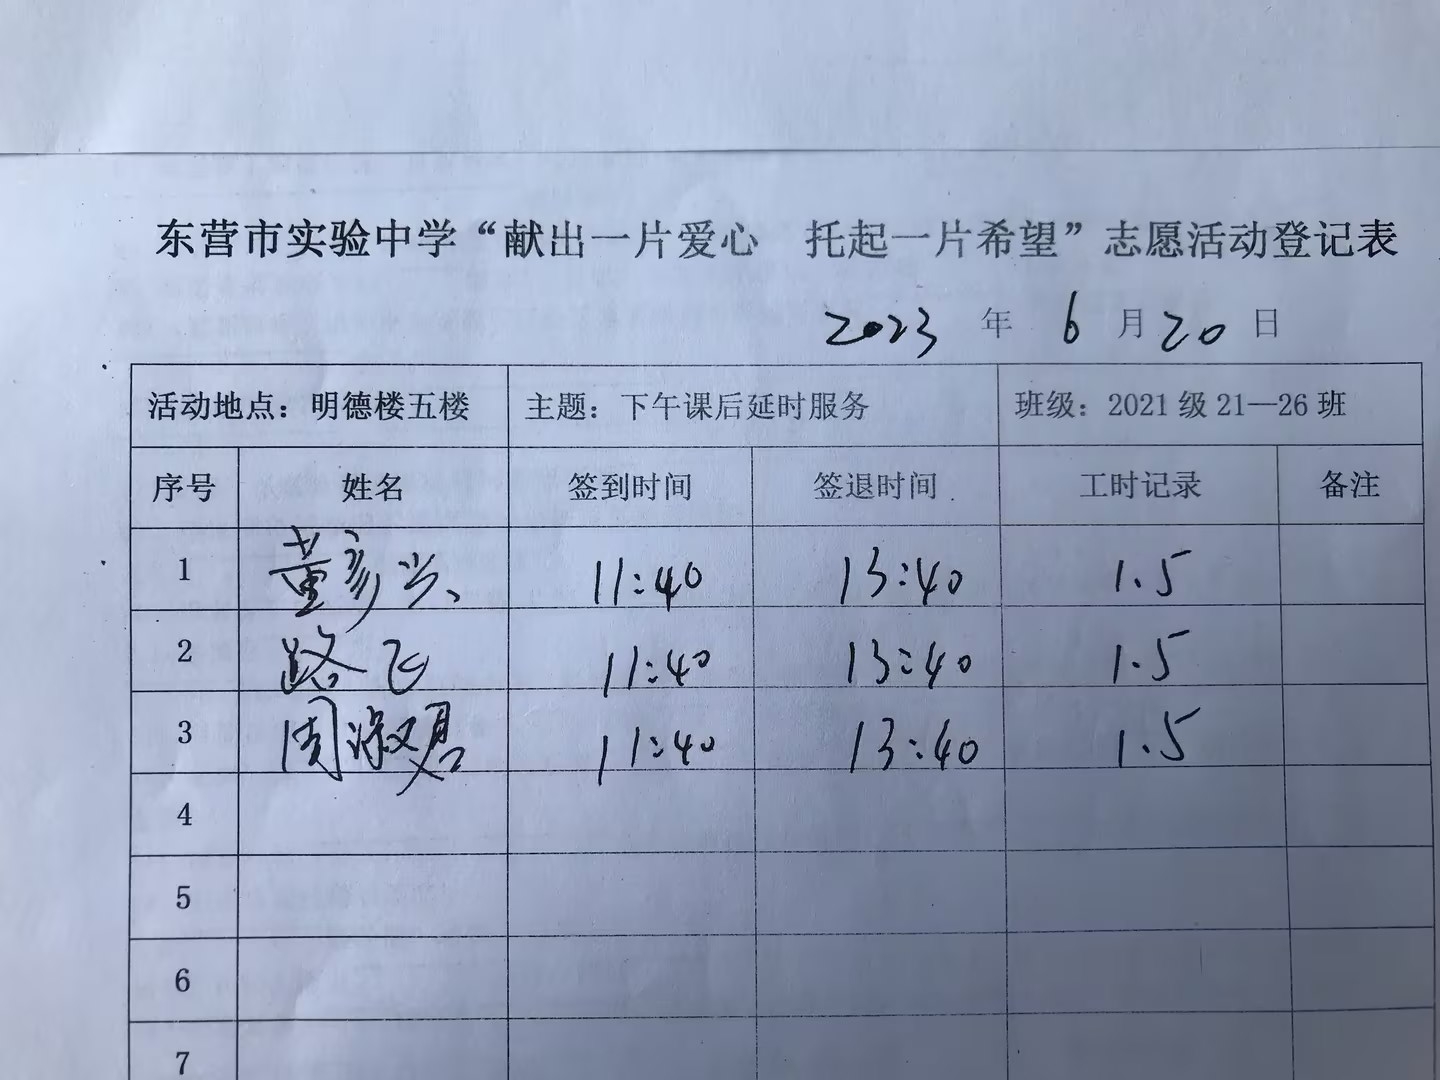 东营市实验中学“献出一片爱心 托起一片希望”志愿活动登记表
2023 年 6 月 20 日
活动地点：明德楼五楼 主题：下午课后延时服务 班级：2021 级 21—26 班
序号 姓名 签到时间 签退时间 工时记录 备注
1 董彦兴 11:40 13:40 1.5
2 路飞 11:40 13:40 1.5
3 周淑君 11:40 13:40 1.5
4
5
6
7